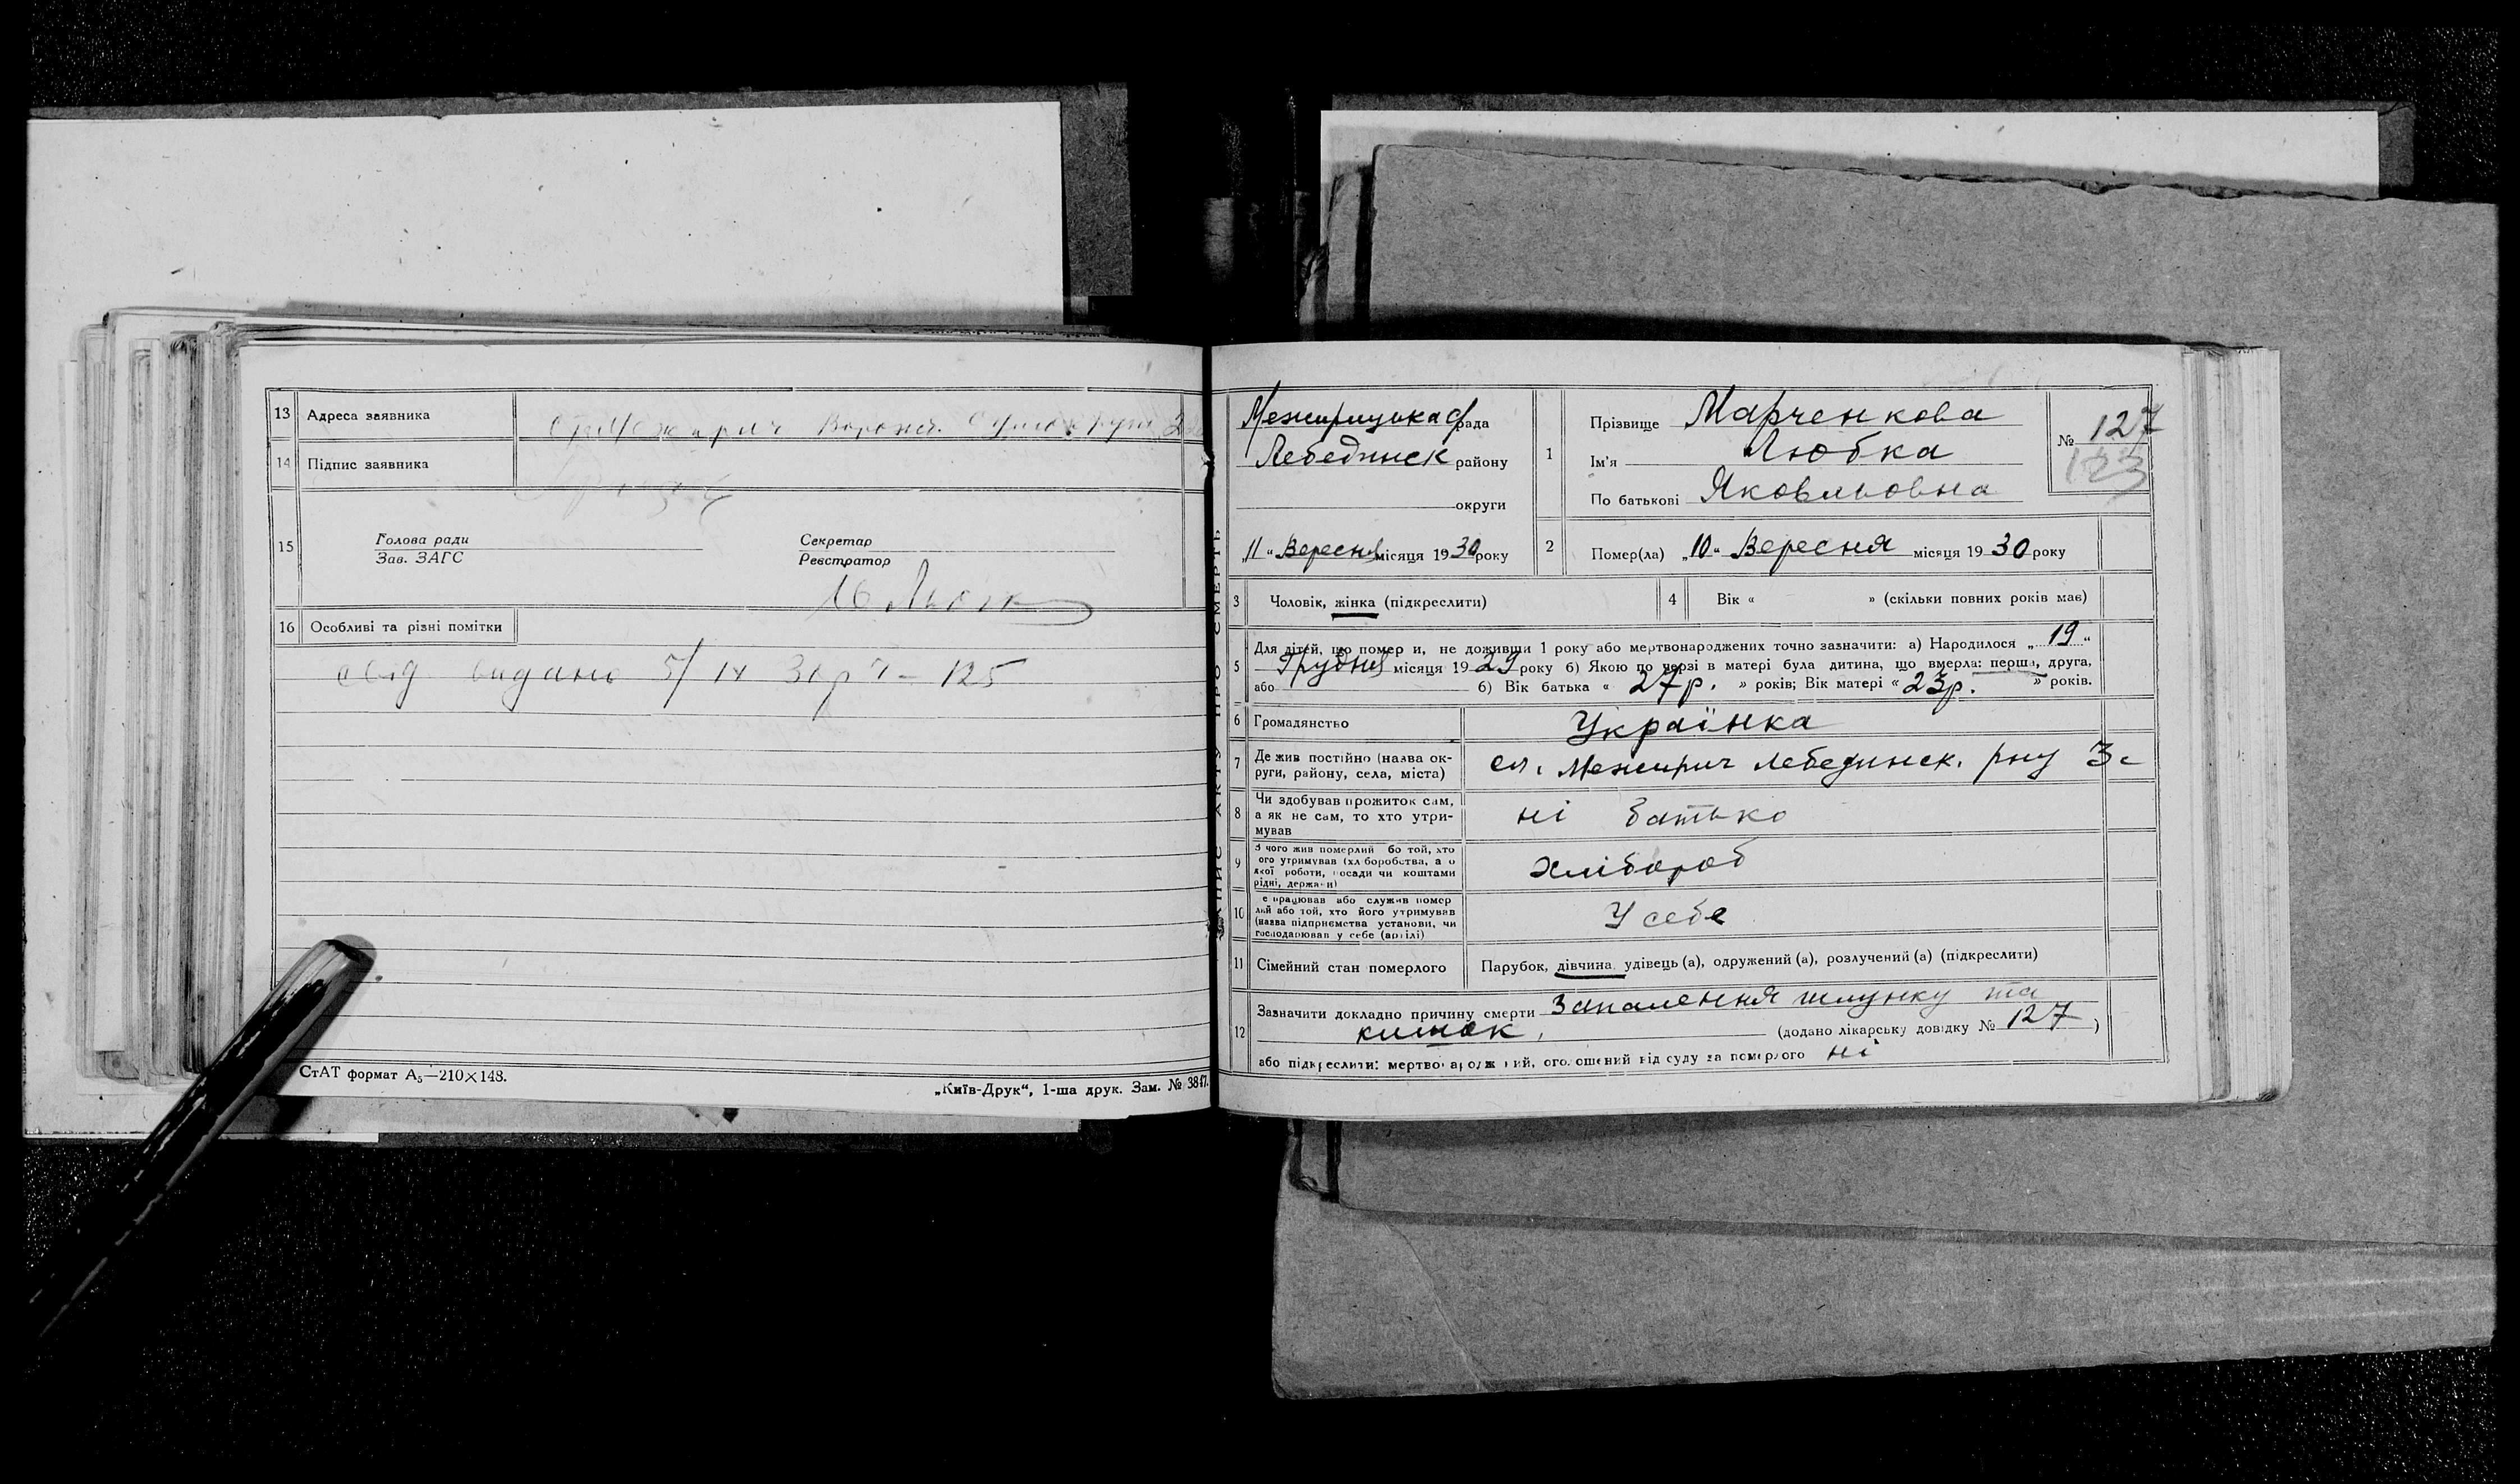 13 Адреса заявника
14 Підпис заявника
15 Голова ради Секретар
Зав. ЗАГС Реєстратор
16 Особливі та різні помітки
видано 5/IX 30р № 125
СтАТ формат А₅—210×148.
„Київ-Друк“, 1-ша друк. Зам. №
ЗАПИС АКТУ ПРО СМЕРТЬ
Межирицька с/рада
Лебединск району
округи
„11“ Вересня місяця 1930 року
1 Прізвище Марченкова
Ім'я Любка
По батькові Яковльовна
№ 127
123
2 Помер(ла) „10“ Вересня місяця 1930 року
3 Чоловік, жінка (підкреслити)
4 Вік « » (скільки повних років має)
5 Для дітей, що помер и, не доживши 1 року або мертвонароджених точно зазначити: а) Народилося „19“
Грудня місяця 1929 року б) Якою по черзі в матері була дитина, що вмерла: перша, друга,
або б) Вік батька « 27р. » років; Вік матері « 23р. » років.
6 Громадянство Українка
7 Де жив постійно (назва ок-
руги, району, села, міста) сл. Межирич Лебединск. рну 3с
8 Чи здобував прожиток сам,
а як не сам, то хто утри-
мував ні батько
9 З чого жив померлий бо той, хто
ого утримував (хл боробства, а о
якої роботи, посади чи коштами
рідні, держави) Хлібороб
10 е працював або служив помер
лий або той, хто його утримував
(назва підприємства установи, чи
господарював у себе (артілі) У себе
11 Сімейний стан померлого Парубок, дівчина, удівець (а), одружений (а), розлучений (а) (підкреслити)
12 Зазначити докладно причину смерти Запалення шлунку та
кишок, (додано лікарську довідку № 127)
або підкреслити: мертвонароджений, оголошений від суду за померлого ні